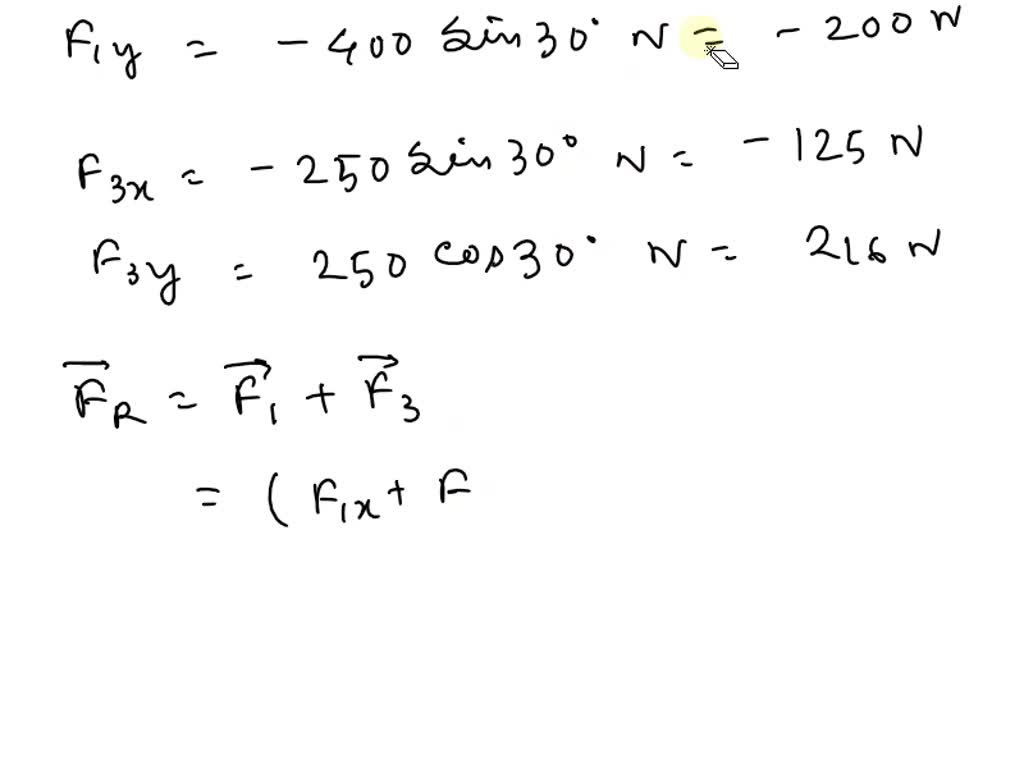 F₁y = - 400 sin 30° N = - 200 N
F₃x = - 250 sin 30° N = - 125 N
F₃y = 250 cos 30° N = 216 N
F⃗_R = F⃗₁ + F⃗₃
= ( F₁x + F